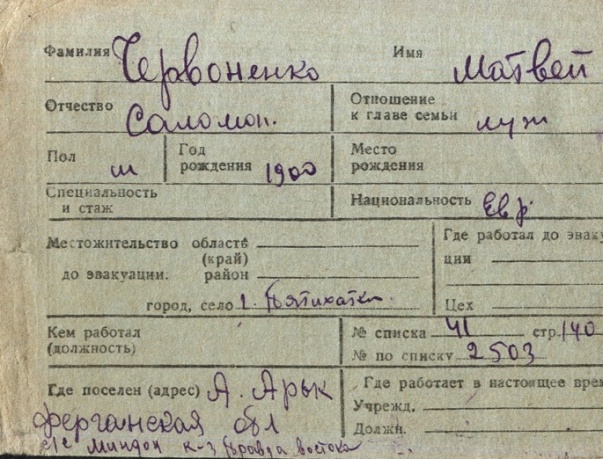 Фамилия Червоненко Имя Матвей
Отчество Саломон. Отношение к главе семьи муж
Пол м Год рождения 1900 Место рождения
Специальность и стаж Национальность Евр.
Местожительство до эвакуации. область (край) район Где работал до эваку
ции
город, село г. Пятихатки Цех
Кем работал (должность) № списка 41 стр. 140
№ по списку 2503
Где поселен (адрес) А. Арык Где работает в настоящее врем
Ферганская обл Учрежд.
с/с Миндон к-з Правда востока Должн.